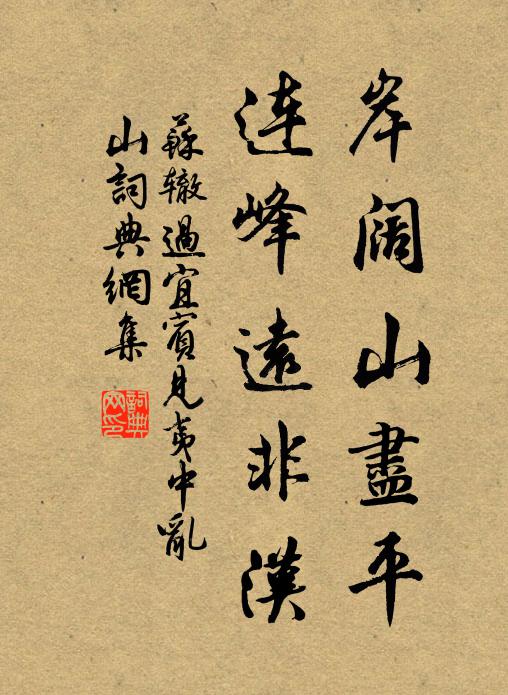 岸阔山盡平
連峰遠非漢
蘇辙過宜賓見夷中亂
山詞典網集
詞典
网印